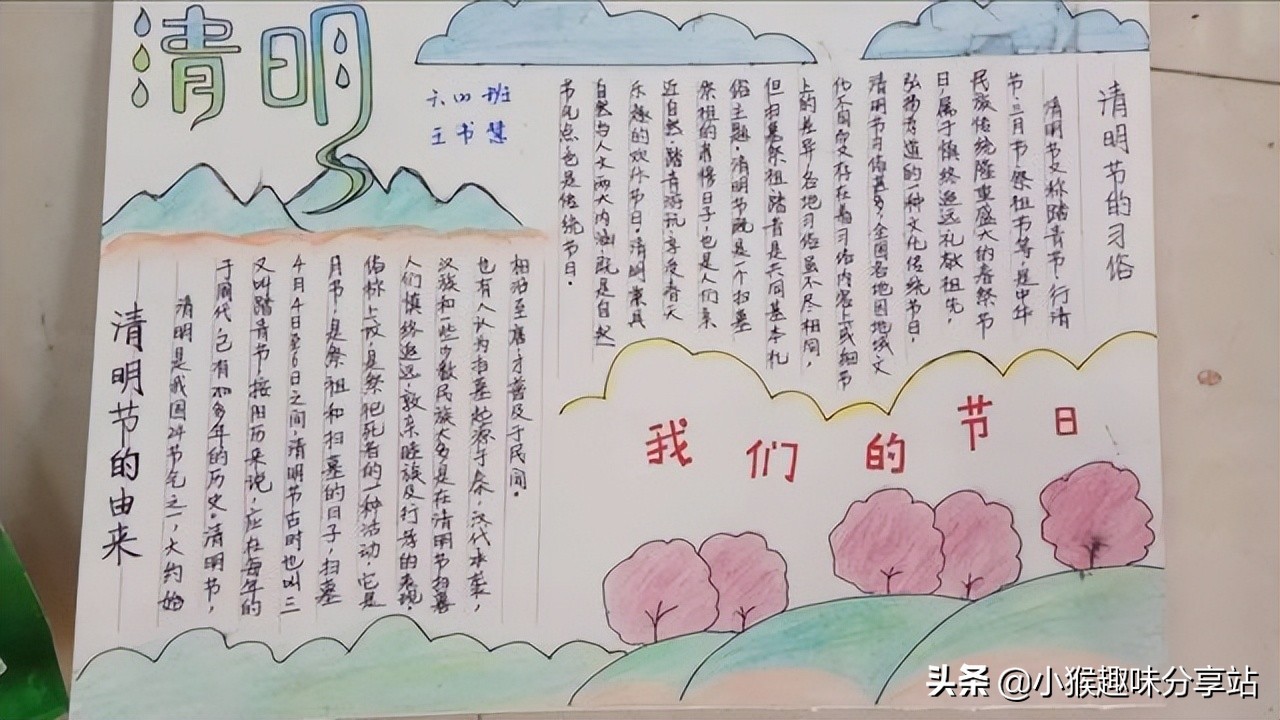 清明
六四班
王书慧
清明节的习俗
清明节又称踏青节、行清
节、三月节、祭祖节等,是中华
民族传统隆重盛大的春祭节
日,属于慎终追远、礼敬祖先,
弘扬孝道的一种文化传统节日,
清明节习俗甚多,全国各地因地域文
化不同而又存在着习俗内容上或细节
上的差异,各地习俗虽不尽相同,
但扫墓祭祖、踏青是共同基本礼
俗主题。清明节既是一个扫墓
祭祖的肃穆日子,也是人们亲
近自然、踏青游玩、享受春天
乐趣的欢乐节日。清明兼具
自然与人文两大内涵,既是自然
节气点,也是传统节日。
清明节的由来
清明是我国24节气之一,大约始
于周代,已有多年的历史。清明节,
又叫踏青节,按阳历来说,应在每年的
4月4日至6日之间,清明节古时也叫三
月节,是祭祖和扫墓的日子,扫墓
俗称上坟,是祭祀死者的一种活动,它是
人们慎终追远、敦亲睦族及行孝的表现。
汉族和一些少数民族大多是在清明节扫墓
也有人认为扫墓起源于秦,汉代承袭,
相沿至唐,才普及于民间。
我们的节日
头条 @小猴趣味分享站